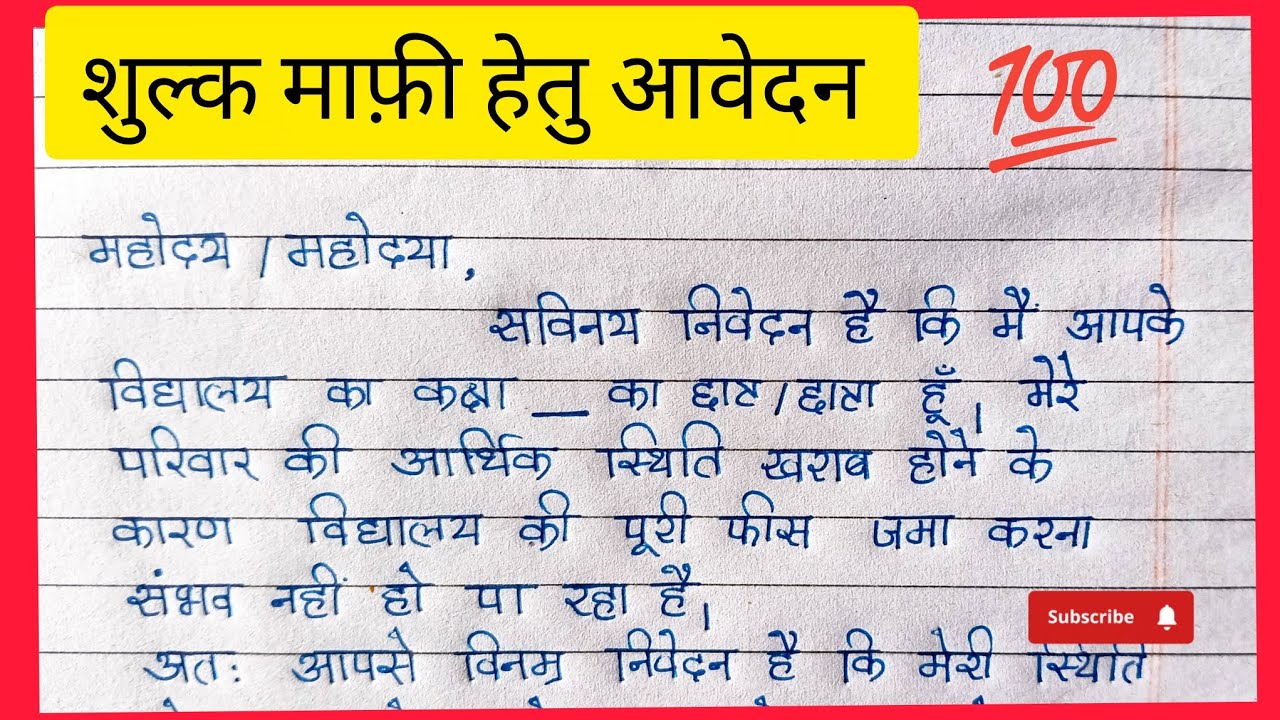 शुल्क माफ़ी हेतु आवेदन
💯
महोदय / महोदया,
सविनय निवेदन है कि मैं आपके
विद्यालय का कक्षा __ का छात्र/छात्रा हूँ। मेरे
परिवार की आर्थिक स्थिति खराब होने के
कारण विद्यालय की पूरी फीस जमा करना
संभव नहीं हो पा रहा है।
Subscribe
अतः आपसे विनम्र निवेदन है कि मेरी स्थिति